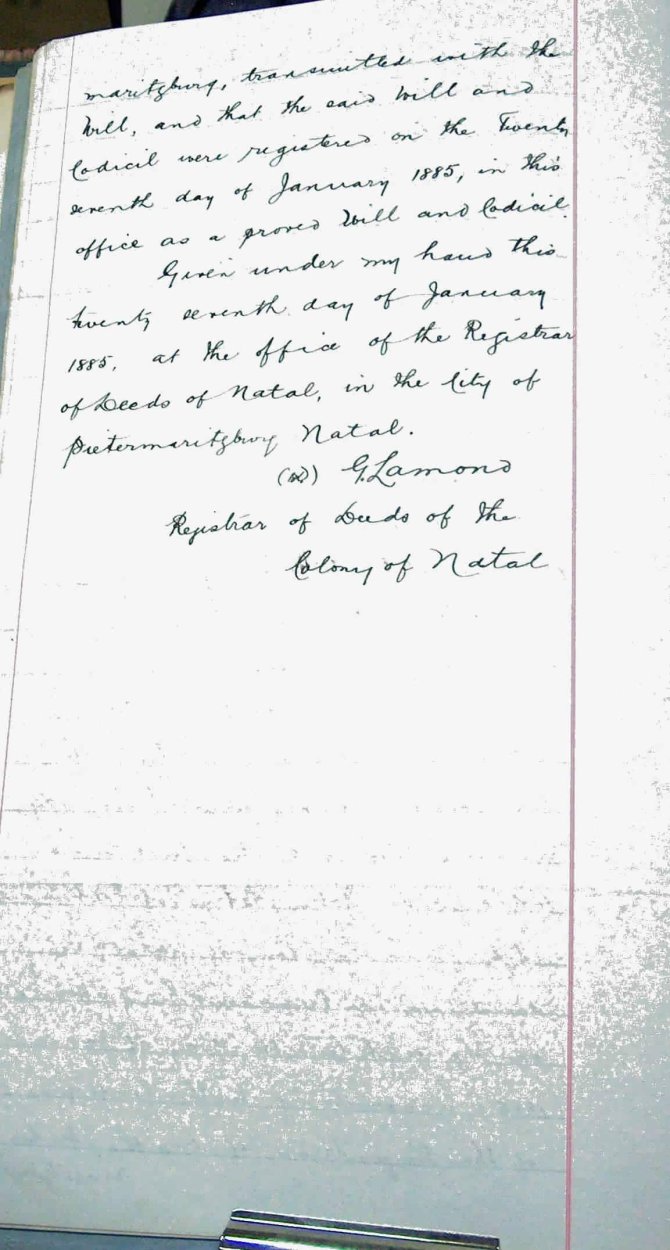 maritzburg, transmitted with the
Will, and that the said Will and
Codicil were registered on the Twenty
seventh day of January 1885, in this
office as a proved Will and Codicil.
Given under my hand this
twenty seventh day of January
1885, at the office of the Registrar
of Deeds of Natal, in the City of
Pietermaritzburg Natal.
(sd) G. Lamond
Registrar of Deeds of the
Colony of Natal